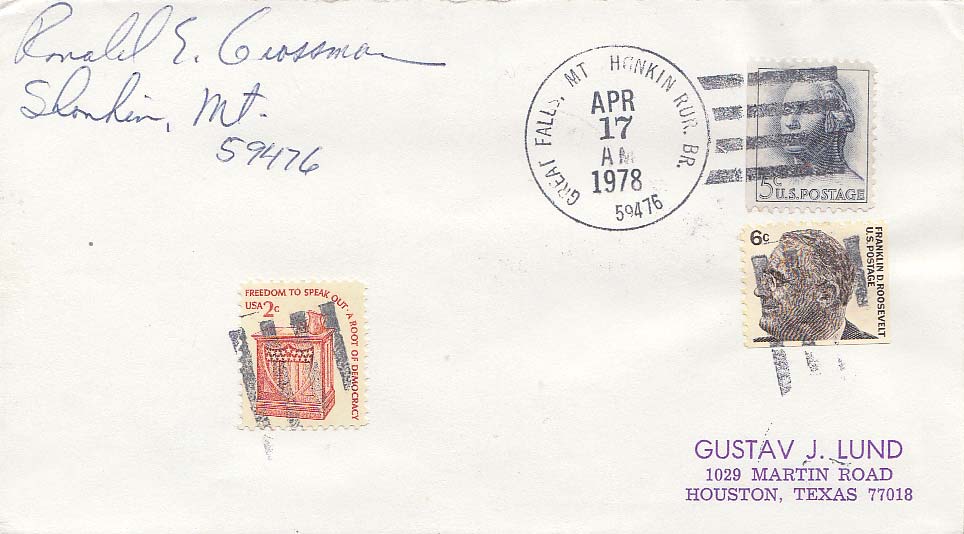 Ronald E. Grossman
Shonkin, Mt.
59476
GREAT FALLS, MT HONKIN RUR. BR.
APR
17
AM
1978
59476
5c
U.S. POSTAGE
6c
FRANKLIN D. ROOSEVELT
U.S. POSTAGE
FREEDOM TO SPEAK OUT · A ROOT OF DEMOCRACY
USA 2c
GUSTAV J. LUND
1029 MARTIN ROAD
HOUSTON, TEXAS 77018